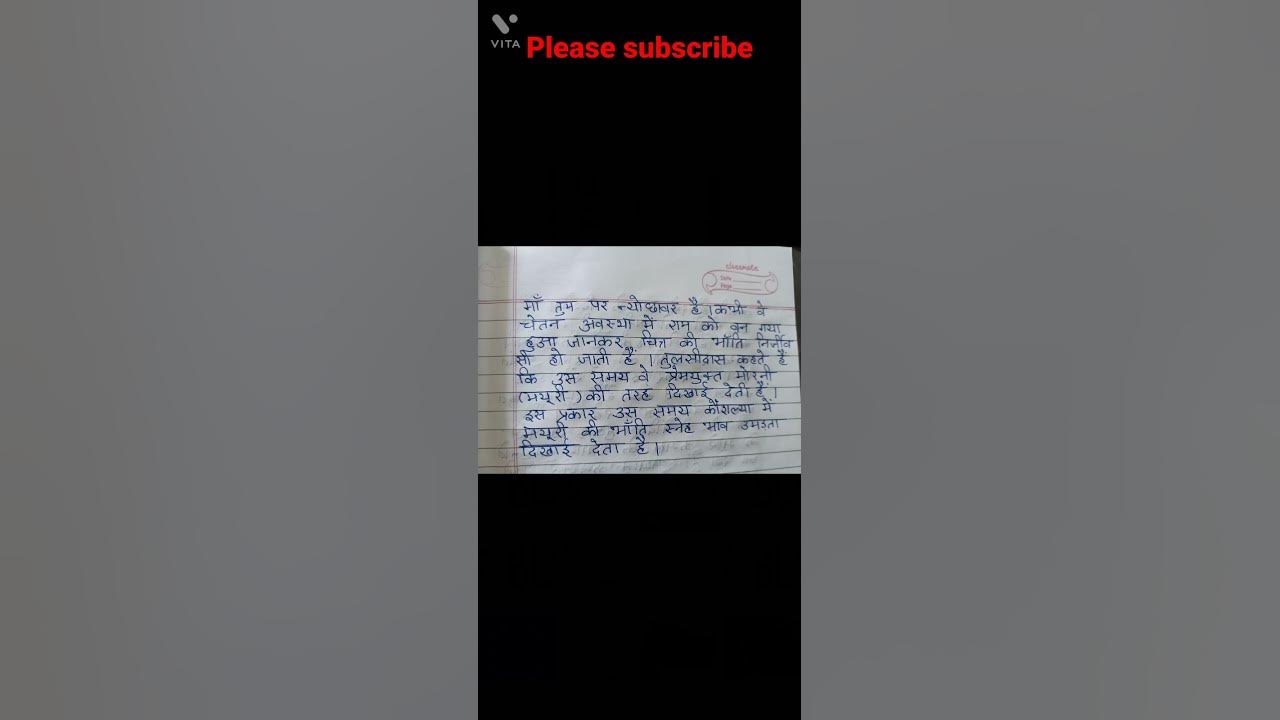 VITA
Please subscribe
classmate
Date
Page
माँ तुम पर न्योछावर है । कभी वे
चेतन अवस्था में राम को वन गया
हुआ जानकर चित्र की भाँति निर्जीव
सी हो जाती हैं । तुलसीदास कहते हैं
कि उस समय वे प्रेमयुक्त मोरनी
(मयूरी) की तरह दिखाई देती हैं ।
इस प्रकार उस समय कौशल्या में
मयूरी की भाँति स्नेह भाव उमडता
दिखाई देता है ।